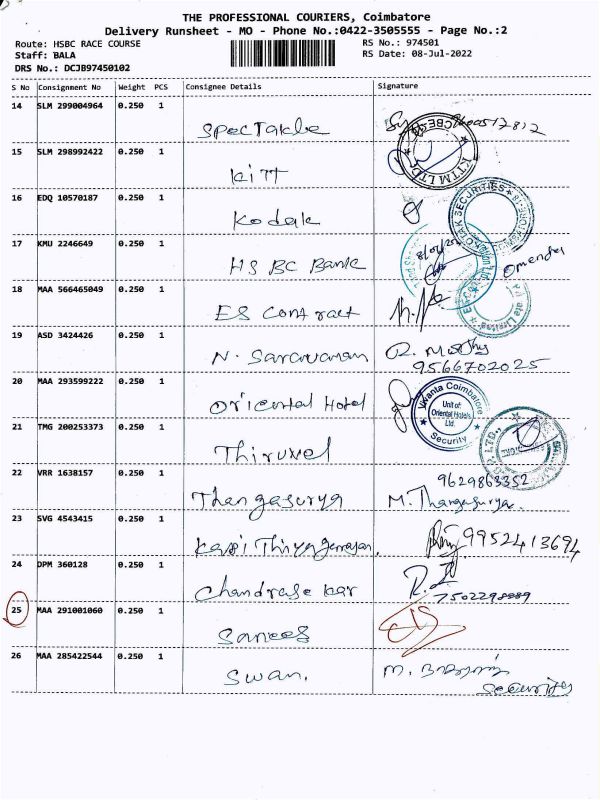 THE PROFESSIONAL COURIERS, Coimbatore
Delivery Runsheet - MO - Phone No.:0422-3505555 - Page No.:2
Route: HSBC RACE COURSE
RS No.: 974501
Staff: BALA
RS Date: 08-Jul-2022
DRS No.: DCJB97450102
S No Consignment No Weight PCS Consignee Details Signature
14 SLM 299004964 0.250 1
Spectakle
15 SLM 298992422 0.250 1
KTTM LTD
KITT
16 EDQ 10570187 0.250 1
KODAK SECURITIES
Kodak
17 KMU 2246649 0.250 1
HSBC Bank
Omender
18 MAA 566465049 0.250 1
ES Contract
19 ASD 3424426 0.250 1
N. Saravanan
9566702025
20 MAA 293599222 0.250 1
Oriental Hotel
Vivanta Coimbatore
Unit of:
Oriental Hotels
Ltd.
Security
21 TMG 200253373 0.250 1
Thiruvel
22 VRR 1638157 0.250 1
9629863352
Thangasurya M. Thangasurya.
23 SVG 4543415 0.250 1
9952413694
24 DPM 360128 0.250 1
Chandrasekar
7502298989
25 MAA 291001060 0.250 1
26 MAA 285422544 0.250 1
Swan.
Security